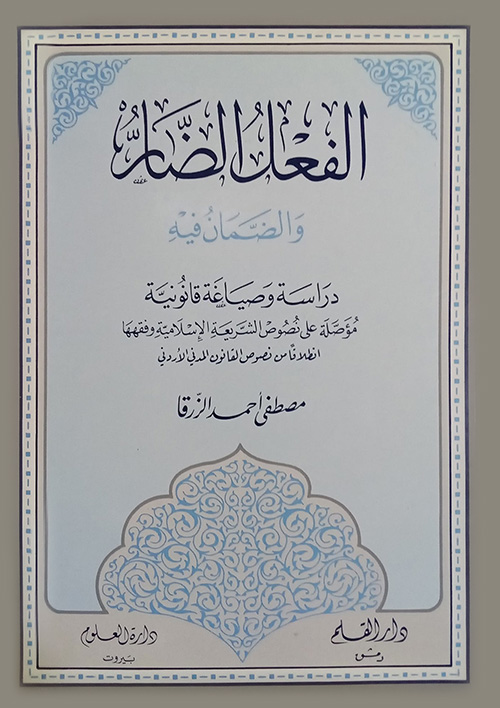 الفعل الضَّارُّ
وَالضَّمَانُ فيْهِ
دِرَاسَة وَصيَاغَة قانُونيَّة
مُؤَصَّلَة عَلى نُصُوصِ الشَّريعَةِ الإِسْلَاميَّةِ وفقهِهَا
انطلاقًا من نصوص القانون المدني الأردني
مصطفى أحمد الزّرقا
دار القلم
دمشق
دارة العلوم
بيروت